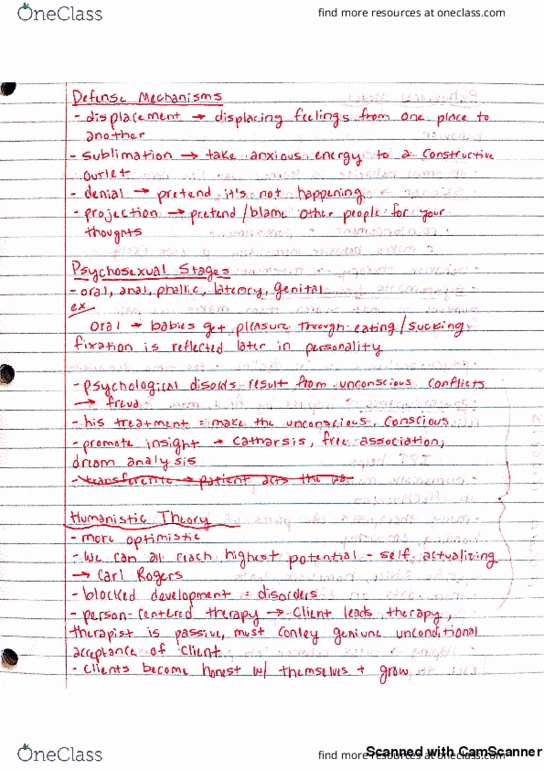 OneClass
find more resources at oneclass.com
Defense Mechanisms
- displacement → displacing feelings from one place to
another
- sublimation → take anxious energy to a constructive
outlet
- denial → pretend it's not happening
- projection → pretend/blame other people for your
thoughts
Psychosexual Stages
- oral, anal, phallic, latency, genital
ex
oral → babies get pleasure through eating/sucking,
fixation is reflected later in personality
- psychological disords result from unconscious conflicts
→ freud
- his treatment = make the unconscious, conscious
- promote insight → catharsis, free association,
dream analysis
- transference → patient acts the
Humanistic Theory
- more optimistic
- we can all reach highest potential - self actualizing
→ Carl Rogers
- blocked development = disorders
- person-centered therapy → client leads therapy,
therapist is passive, must conley geniune unconditional
acceptance of client
- clients become honest w/ themselves + grow
OneClass
find more resources at oneclass.com
Scanned with CamScanner